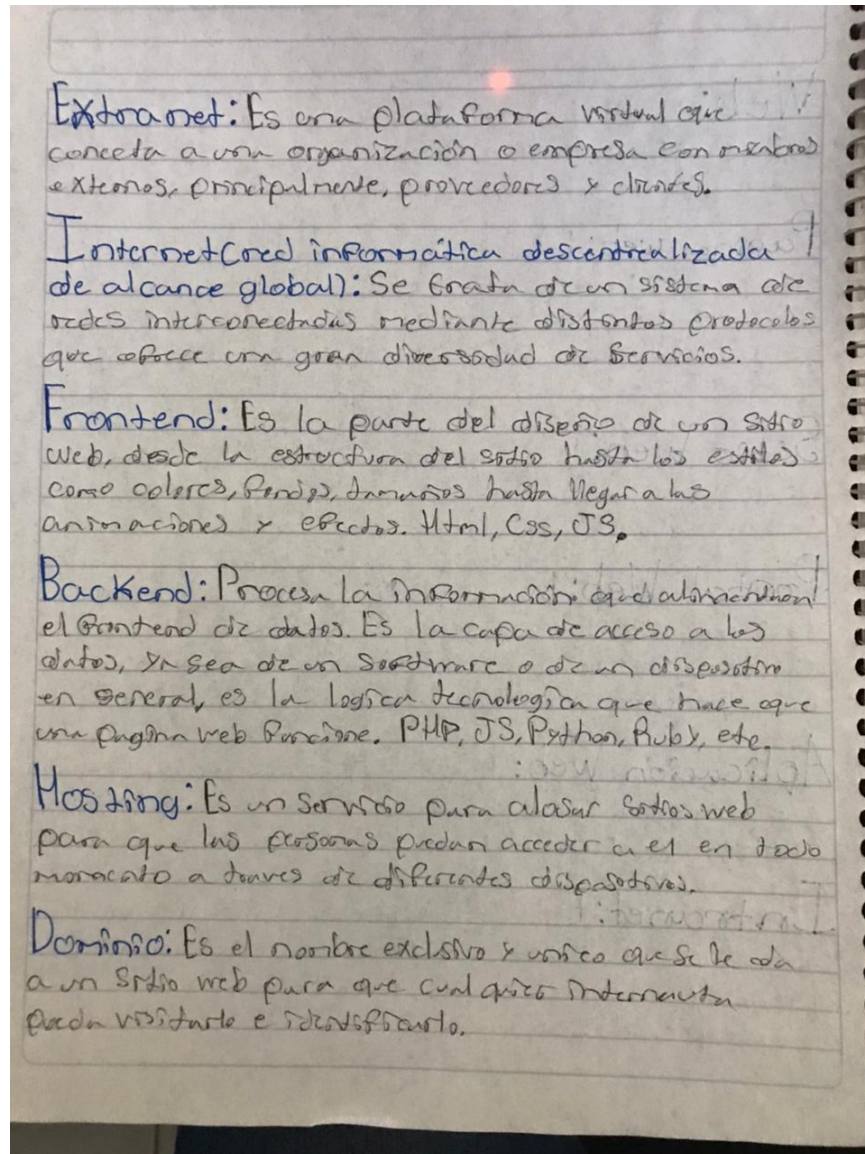 Extranet: Es una plataforma virtual que
conecta a una organización o empresa con miembros
externos, principalmente, proveedores y clientes.
Internet(red informática descentrealizada
de alcance global): Se trata de un sistema de
redes interconectadas mediante distintos protocolos
que ofrece una gran diversidad de servicios.
Frontend: Es la parte del diseño de un sitio
web, desde la estructura del sitio hasta los estilos
como colores, fondos, tamaños hasta llegar a las
animaciones y efectos. Html, Css, JS.
Backend: Procesa la información que alimentan
el frontend de datos. Es la capa de acceso a los
datos, ya sea de un software o de un dispositivo
en general, es la logica tecnologica que hace que
una pagina web funcione. PHP, JS, Python, Ruby, etc.
Hosting: Es un servicio para alojar sitios web
para que las personas puedan acceder a el en todo
momento a traves de diferentes dispositivos.
Dominio: Es el nombre exclsivo y unico que se le da
a un sitio web para que cualquier internauta
pueda visitarlo e identificarlo.